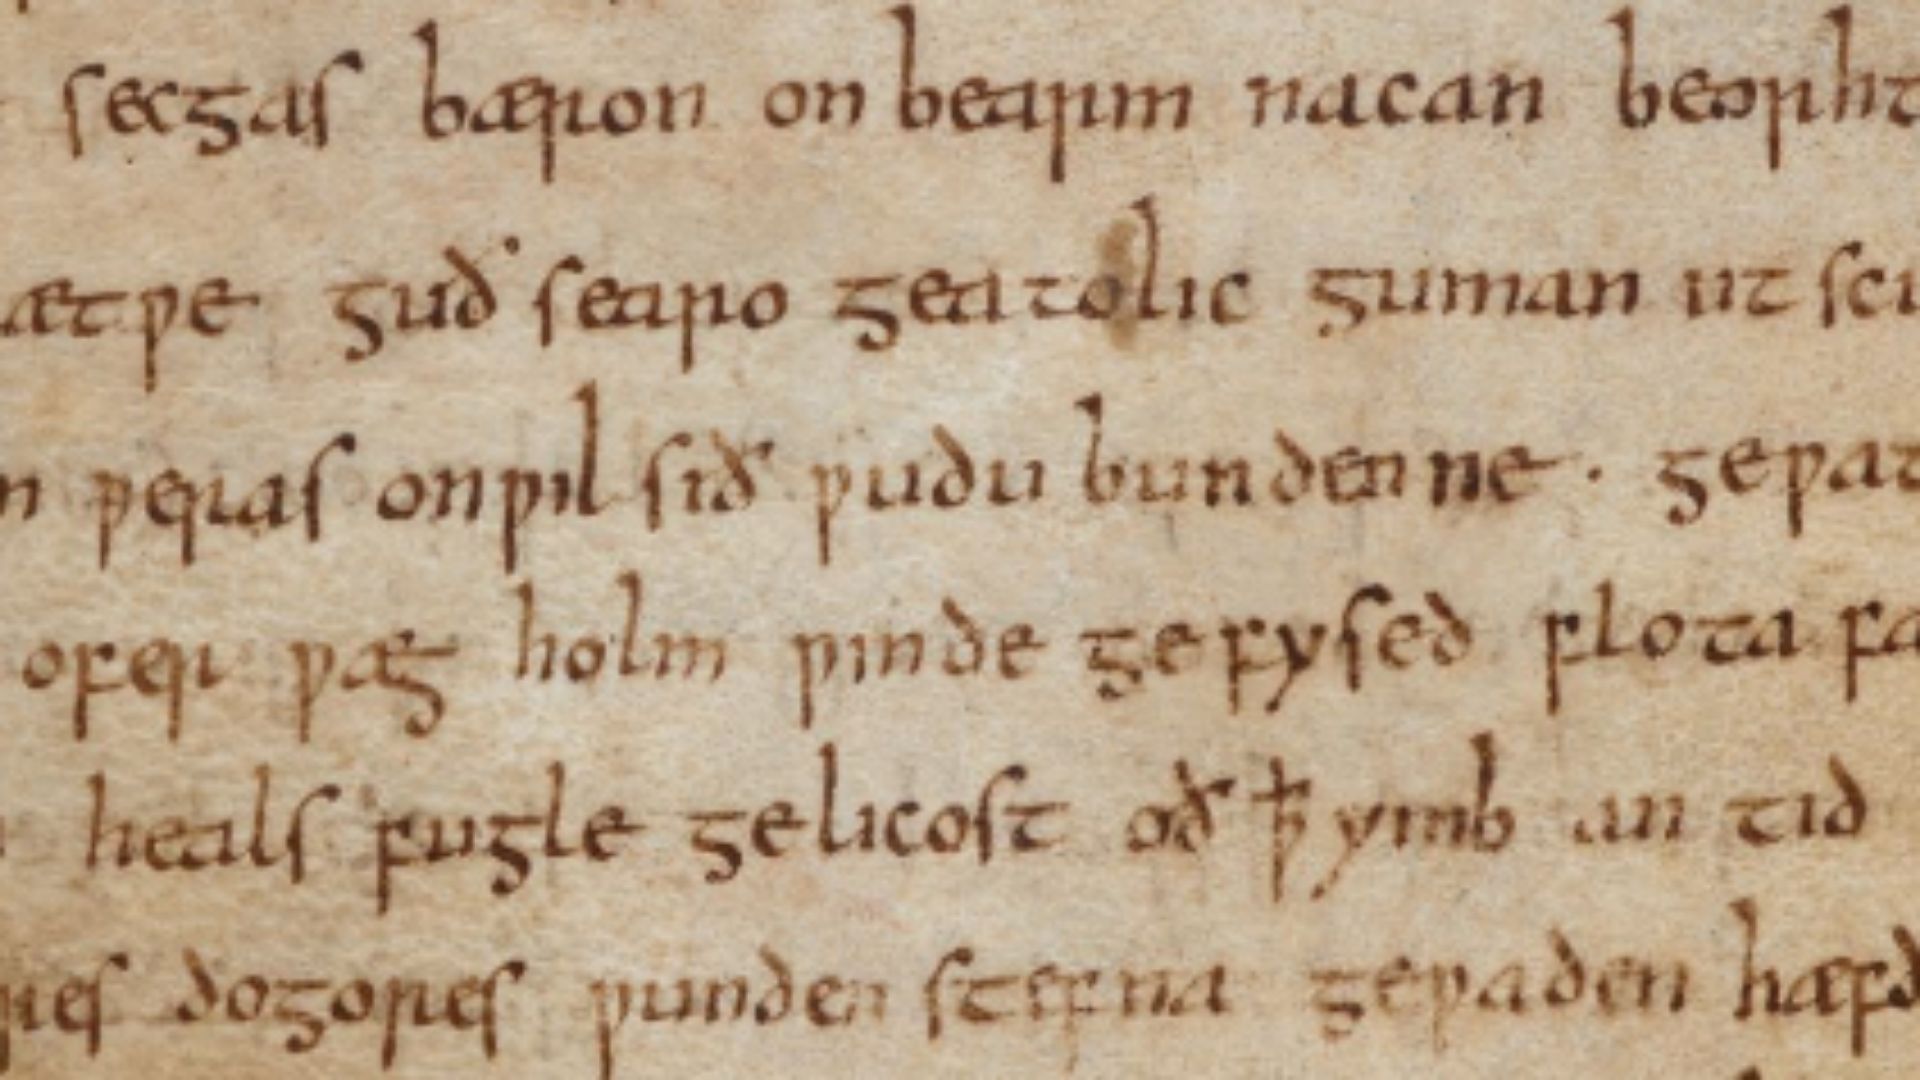 secgas bæron on bearm nacan beorht
ætƿe guð searo geatolic guman ut scu
n ƿeras on ƿil sið ƿudu bundenne · geƿat
ofer ƿæg holm ƿinde gefysed flota fa
heals fugle gelicost oð ꝥ ymb an tid
res dogores ƿunden stefna geƿaden hæfd